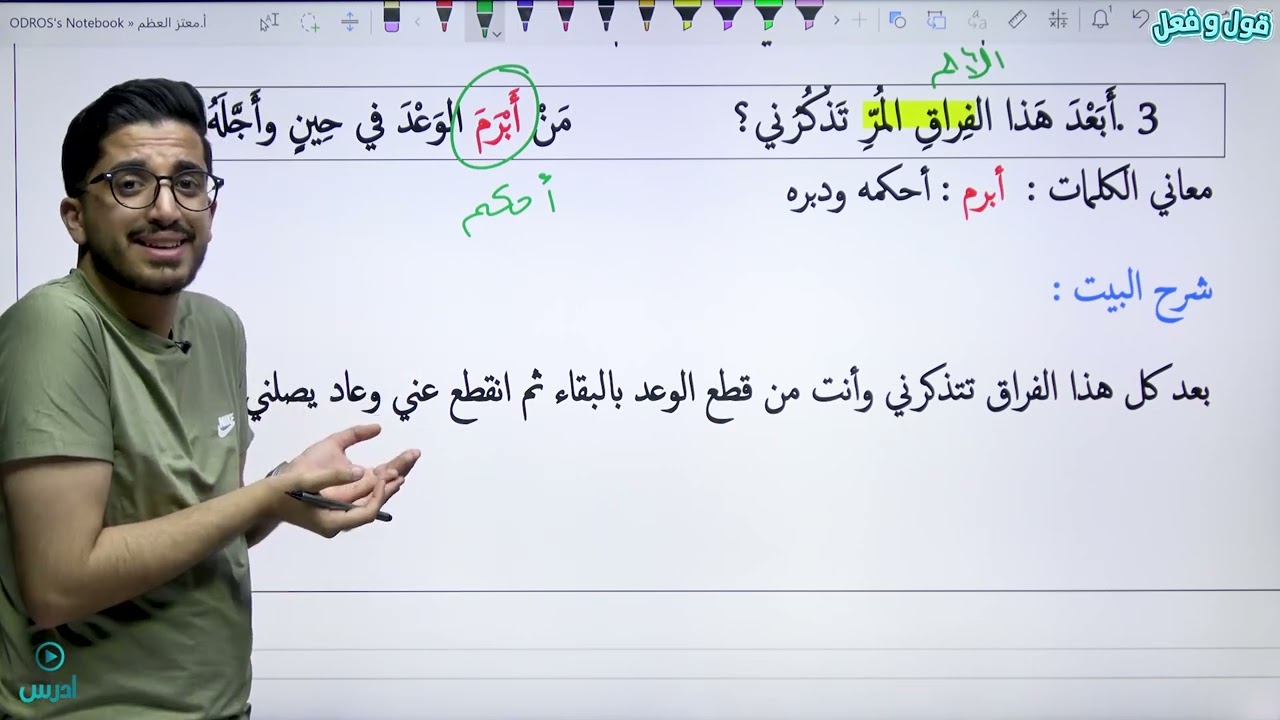 ODROS's Notebook » أ.معتز العظم
قول و فعل
الألم
3 .أَبَعْدَ هَذا الفِراقِ المُرِّ تَذْكُرُني؟ مَنْ أَبْرَمَ الوَعْدَ في حِينٍ وأَجَّلَهُ
أحكم
معاني الكلمات : أبرم : أحكمه ودبره
شرح البيت :
بعد كل هذا الفراق تتذكرني وأنت من قطع الوعد بالبقاء ثم انقطع عني وعاد يصلني
NIKE
أدرس